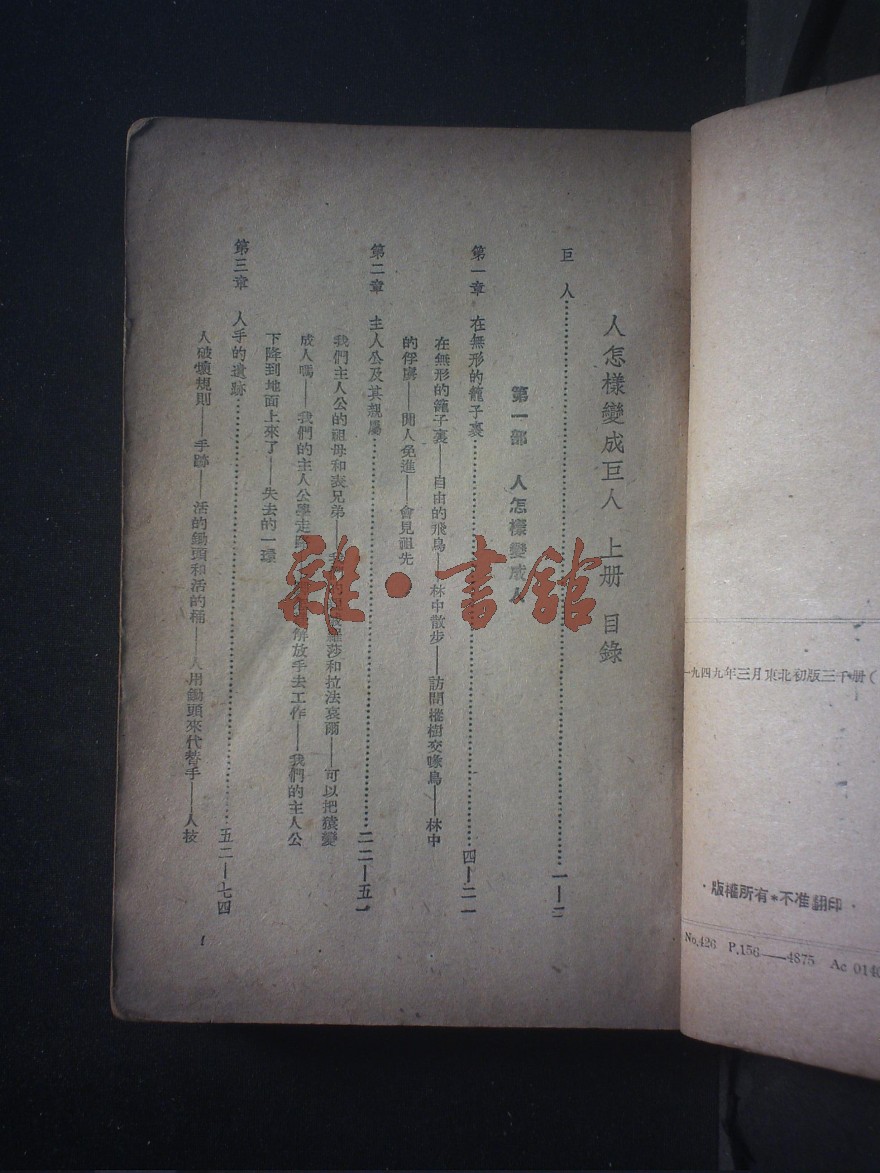 一九四九年三月東北初版三千册(
·版權所有*不准翻印·
No.426 P.156——4875 Ac 0140
人怎樣變成巨人 上册 目錄
巨 人……一—三
第一部 人怎樣變成人
第一章 在無形的籠子裏……四—二一
在無形的籠子裏——自由的飛鳥——林中散步——訪問樅樹交喙鳥——林中
的俘虜——閒人免進——會見祖先
第二章 主人公及其親屬……二二—五一
我們主人公的祖母和表兄弟——我們的 羅莎和拉法哀爾——可以把猿變
成人嗎——我們的主人公學走路 解放手去工作——我們的主人公
下降到地面上來了——失去的一環
第三章 人手的遺跡……五二—七四
人破壞規則——手跡——活的鋤頭和活的桶——人用鋤頭來代替手——人技
1
雜·書館